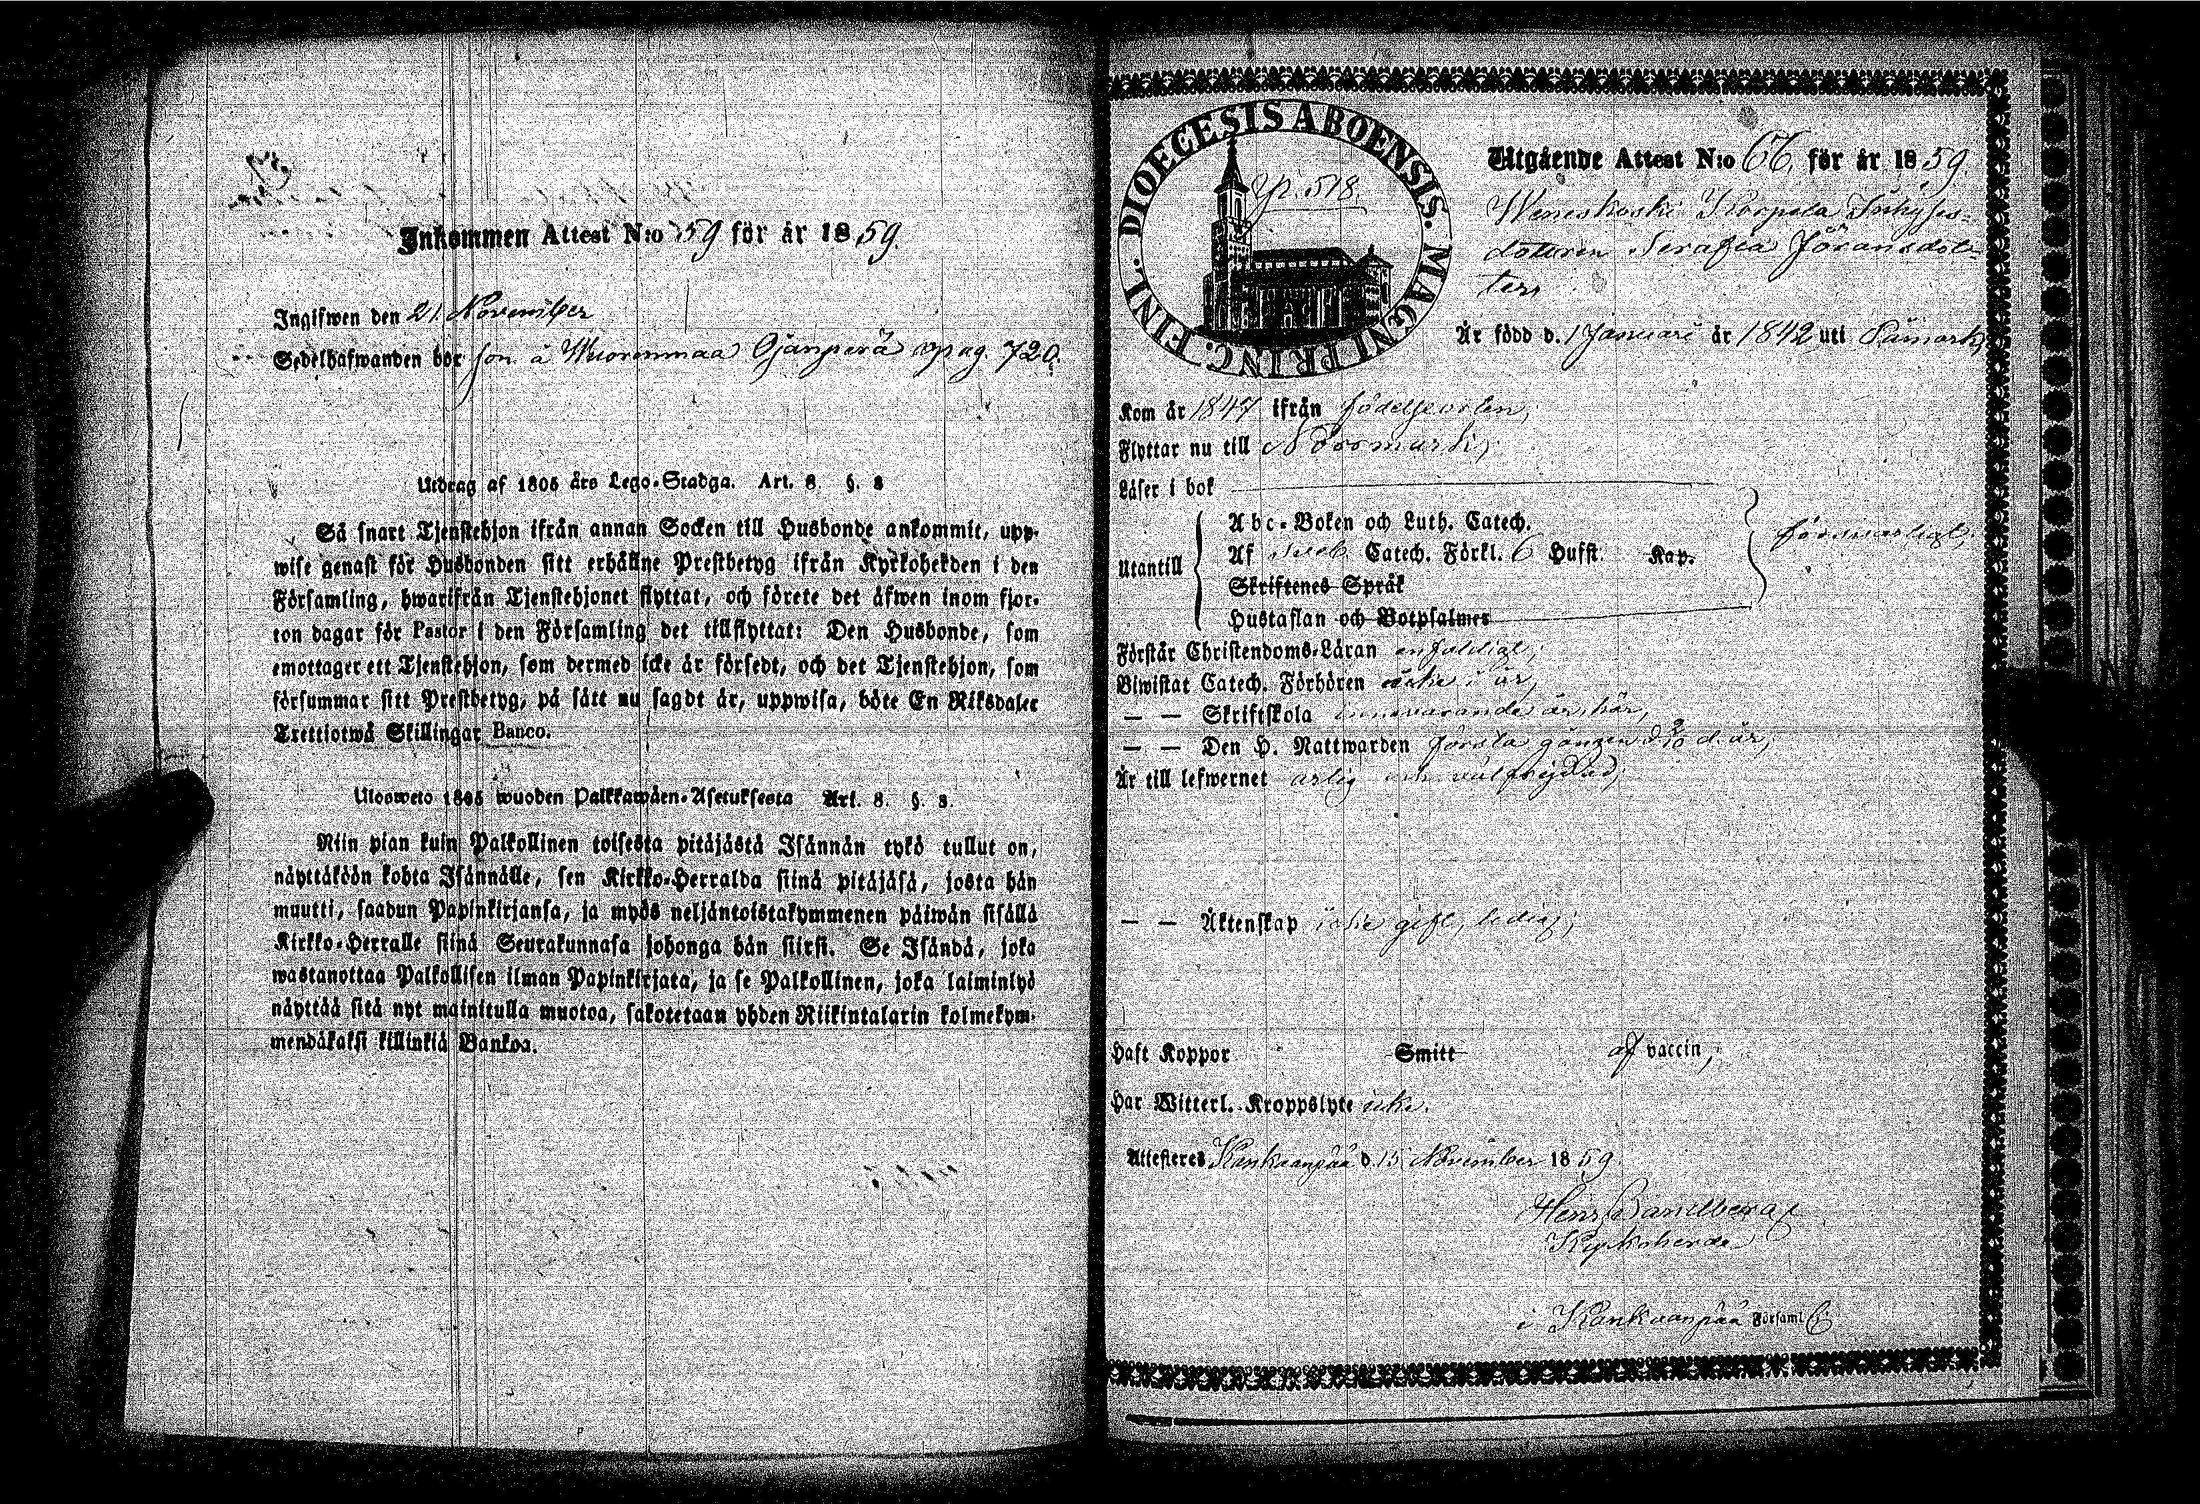 Inkommen Attest N:o 59 för år 1859.
Ingifwen den 21 November
Sedelhafwanden bor son å Wuorenmaa Ojanperä pag. 720.
Utdrag af 1805 års Lego-Stadga. Art. 8. §. 8
Så snart Tjenstehjon ifrån annan Socken till Husbonde ankommit, upp-
wise genast för Husbonden sitt erhållne Prestbetyg ifrån Kyrkoherden i den
Församling, hwarifrån Tjenstehjonet flyttat, och förete det äfwen inom fjor-
ton dagar för Pastor i den Församling det tillflyttat: Den Husbonde, som
emottager ett Tjenstehjon, som dermed icke är försedt, och det Tjenstehjon, som
försummar sitt Prestbetyg, på sätt nu sagdt är, uppwisa, böte En Riksdaler
Trettiotwå Skillingar Banco.
Ulosweto 1805 wuoden Palkkawäen-Asetuksesta Art. 8. §. 8.
Niin pian kuin Palkollinen toisesta pitäjästä Isännän tykö tullut on,
näyttäköön kohta Isännälle, sen Kirkko-Herralda siinä pitäjäsä, josta hän
muutti, saadun Papinkirjansa, ja myös neljäntoistakymmenen päiwän sisällä
Kirkko-Herralle siinä Seurakunnasa johonga hän siirsi. Se Isändä, joka
wastanottaa Palkollisen ilman Papinkirjata, ja se Palkollinen, joka laiminlyö
näyttää sitä nyt mainitulla muotoa, sakotetaan yhden Riikintalarin kolmekym-
mendäkaksi killinkiä Bankoa.
DIOECESIS ABOENSIS. MAGNI PRINC. FINL.
p. 518.
Utgående Attest N:o 67, för år 1859.
Weneskoski Korpela Inhyses-
dotteren Serafia Göransdot-
ter
Är född d. 1 Januari år 1842 uti Påmark,
Kom år 1847 ifrån födelseorten,
Flyttar nu till Norrmark,
Läser i bok
Utantill
Abc-Boken och Luth. Catech.
Af Sveb. Catech. Förkl. 6 Hufst. Kap.
Skriftenes Språk
Hustaflan och Botpsalmer
försvarligt,
Förstår Christendoms-Läran enfaldigt,
Biwistat Catech. Förhören icke i år,
— — Skriftskola innevarande år här,
— — Den H. Nattwarden första gången d. 2/10 d. år,
Är till lefwernet ärlig och välfrejdad,
— — Äktenskap icke gift, ledig,
Haft Koppor Smitt af vaccin,
Har Witterl. Kroppslyte icke.
Attesteres Kankaanpää d. 15 November 1859
Henr. Sandberg
Kyrkoherde
i Kankaanpää Församl.